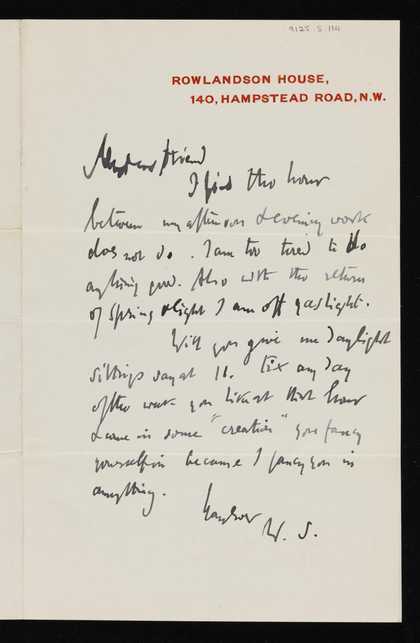 9125.5.114
ROWLANDSON HOUSE,
140, HAMPSTEAD ROAD, N.W.
My dear friend
I find the hour
between my afternoon & evening work
does not do. I am too tired to do
anything good. Also with the return
of spring & light I am off gaslight.
Will you give me daylight
sittings say at 11. Fix any day
of the week you like at that hour
& come in some "creation" you fancy
yourself in because I fancy you in
anything.
W. S.